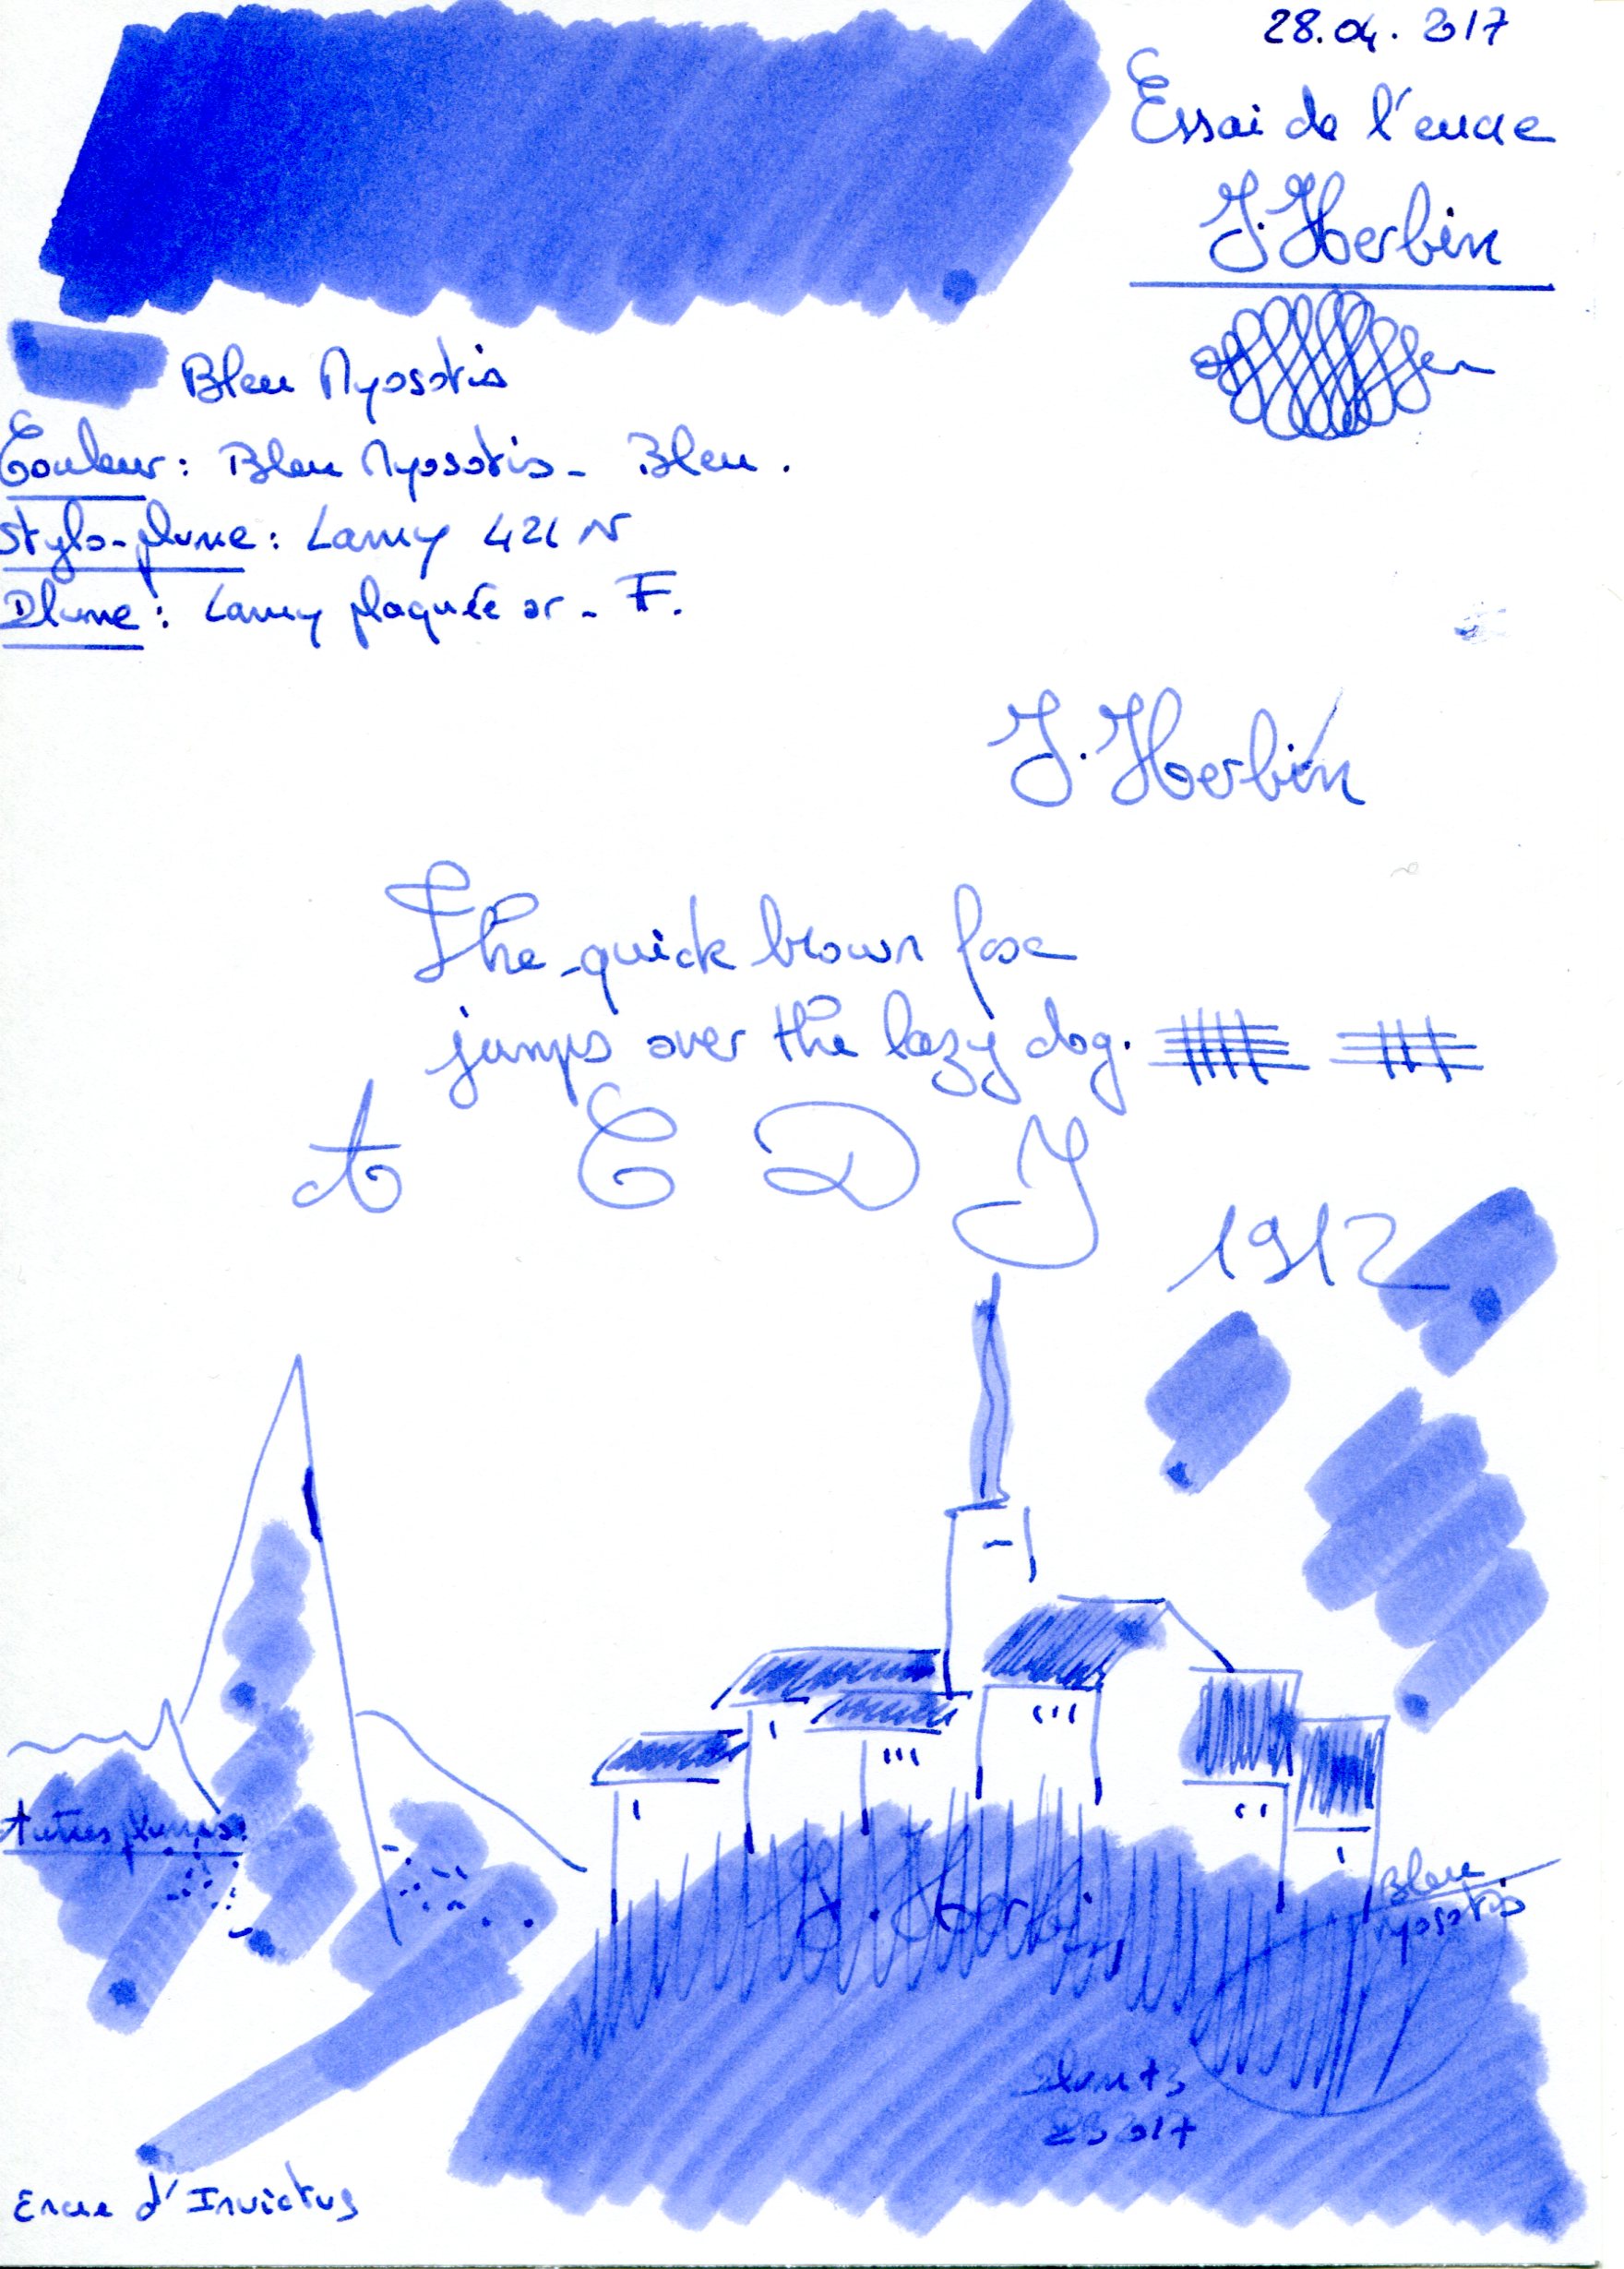 28.04.2017
Essai de l'encre
J. Herbin
Bleu Myosotis
Couleur : Bleu Myosotis - Bleu .
Stylo-plume : Lamy 421 N
Plume : Lamy plaquée or - F.
J. Herbin
The quick brown fox
jumps over the lazy dog.
A C D J
1912
Autres plumes:
J. Herbin
Bleu
Myosotis
Encre d'Invictus